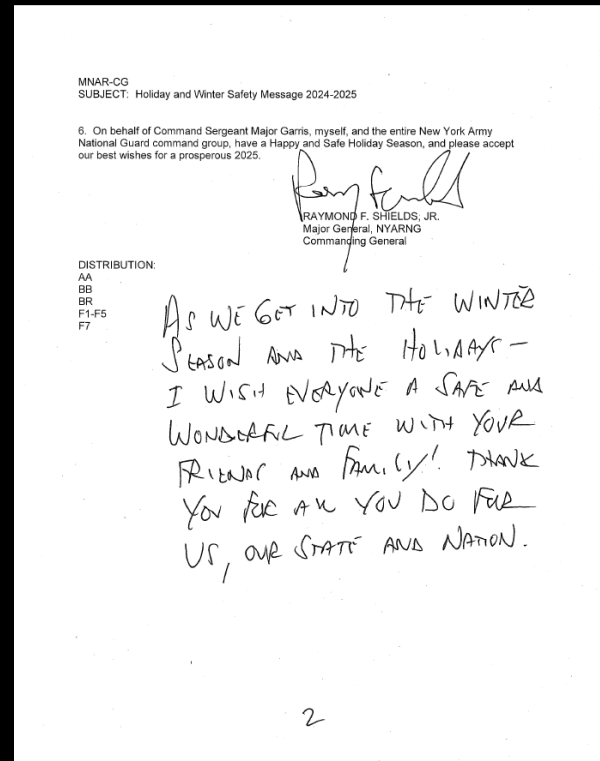 MNAR-CG
SUBJECT: Holiday and Winter Safety Message 2024-2025
6. On behalf of Command Sergeant Major Garris, myself, and the entire New York Army
National Guard command group, have a Happy and Safe Holiday Season, and please accept
our best wishes for a prosperous 2025.
RAYMOND F. SHIELDS, JR.
Major General, NYARNG
Commanding General
DISTRIBUTION:
AA
BB
BR
F1-F5
F7
AS WE GET INTO THE WINTER
SEASON AND THE HOLIDAYS –
I WISH EVERYONE A SAFE AND
WONDERFUL TIME WITH YOUR
FRIENDS AND FAMILY! THANK
YOU FOR ALL YOU DO FOR
US, OUR STATE AND NATION.
2